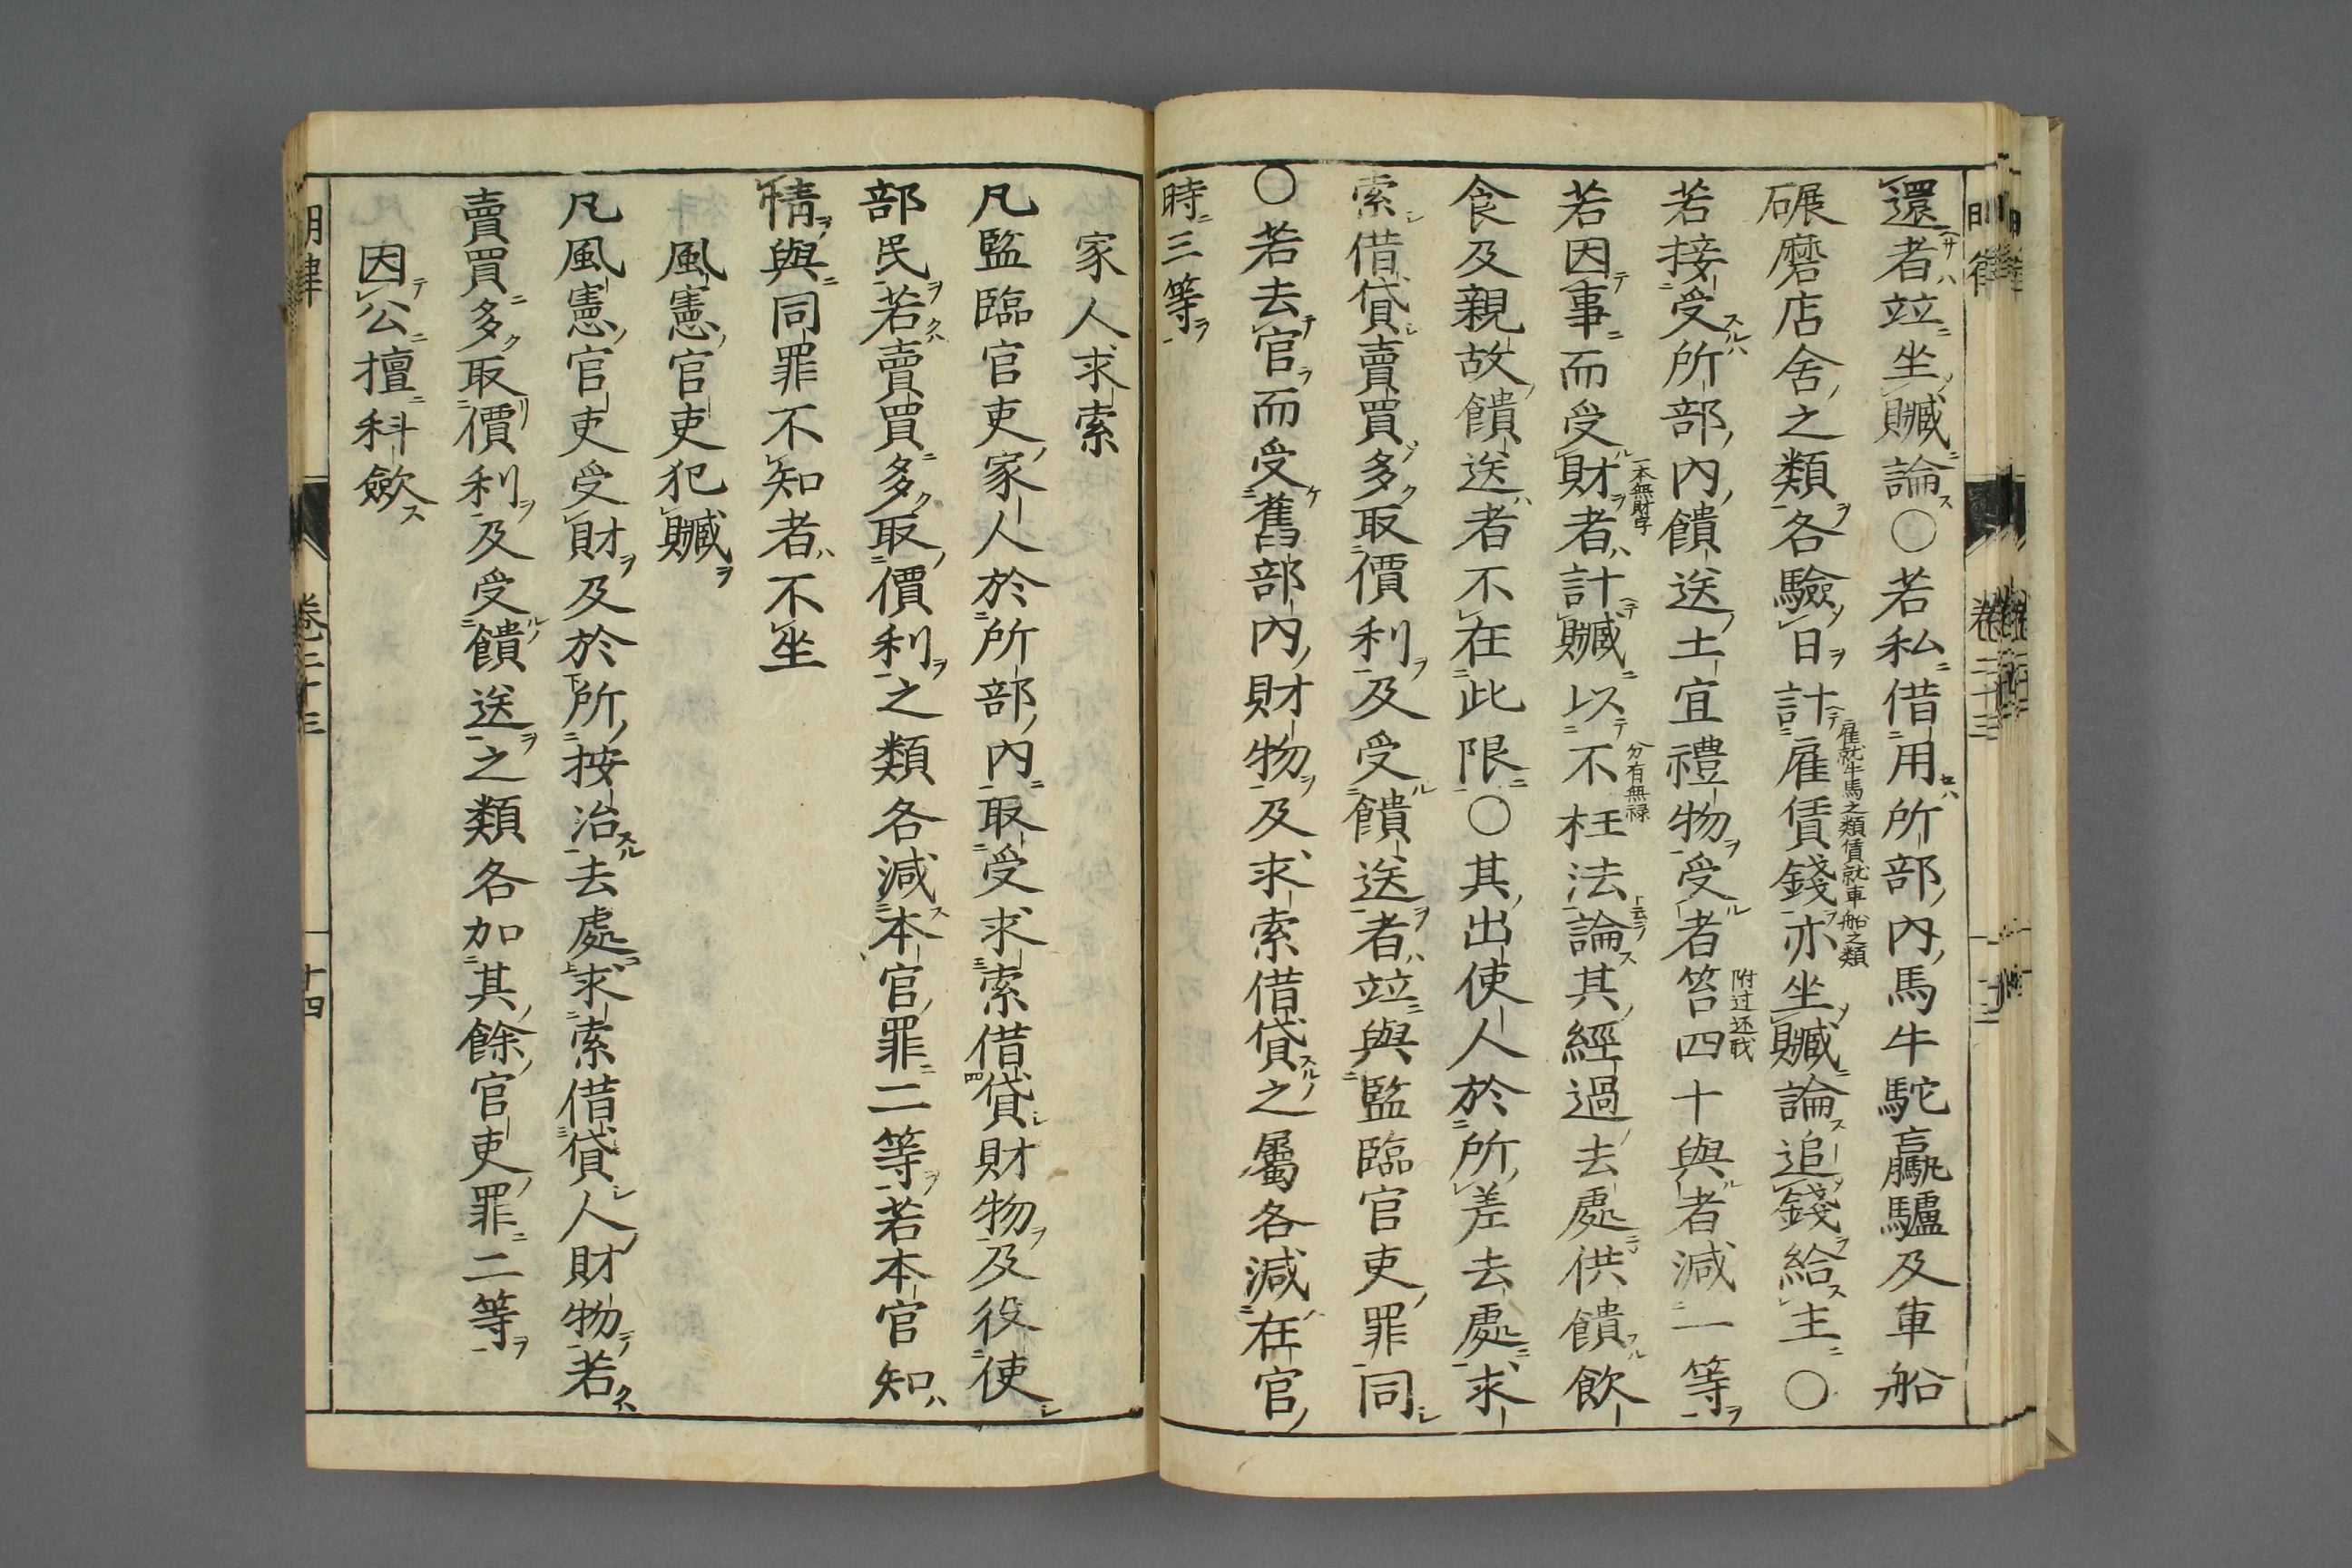 還者竝坐贓論○若私借用所部內馬牛駝驘驢及車船
碾磨店舍之類各驗日計雇賃錢亦坐贓論追錢給主○
雇就牛馬之類賃就車船之類
若接受所部內饋送土宜禮物受者笞四十與者減一等
附过还戝
若因事而受財者計贓以不枉法論其經過去處供饋飲
一本無財字
分有無禄
食及親故饋送者不在此限○其出使人於所差去處求
索借貸賣買多取價利及受饋送者竝與監臨官吏罪同
○若去官而受舊部內財物及求索借貸之屬各減在官
時三等
家人求索
凡監臨官吏家人於所部內取受求索借貸財物及役使
部民若賣買多取價利之類各減本官罪二等若本官知
情與同罪不知者不坐
風憲官吏犯贓
凡風憲官吏受財及於所按治去處求索借貸人財物若
賣買多取價利及受饋送之類各加其餘官吏罪二等
因公擅科歛
明律
卷二十三
十四